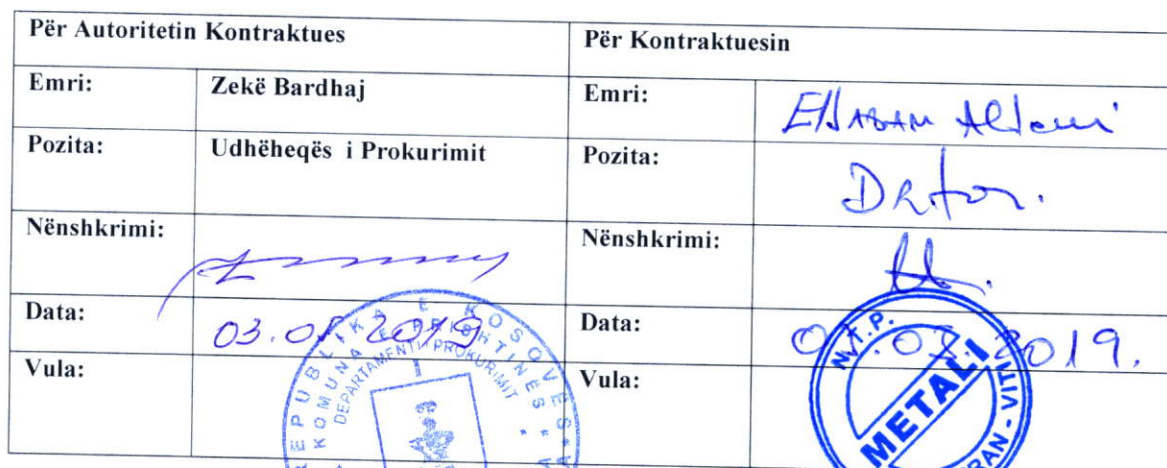 Për Autoritetin Kontraktues
Për Kontraktuesin
Emri: Zekë Bardhaj
Emri:
Pozita: Udhëheqës i Prokurimit
Pozita:
Nënshkrimi:
Nënshkrimi:
Data:
Data: 2019.
Vula:
REPUBLIKA E KOSOVËS
KOMUNA E PRISHTINËS
DEPARTAMENTI I PROKURIMIT
Vula:
N.T.P.
METALI
VITI